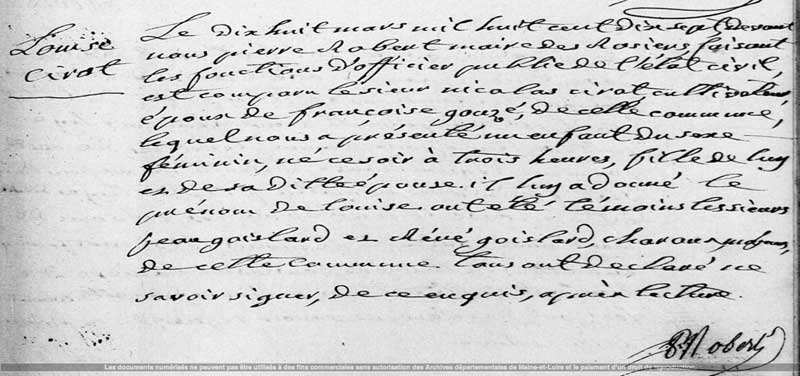 Louise
Cirot
Le dix huit mars mil huit cent dix sept devant
nous pierre Robert maire des Rosiers faisant
les fonctions d'officier public de l'état civil,
est comparu le sieur nicolas cirot cultivateur
époux de françoise gouzé, de cette commune,
lequel nous a présenté un enfant du sexe
féminin, né ce soir à trois heures, fille de luy
et de sa ditte épouse. il luy a donné le
prénom de louise. ont été témoins les sieurs
jean goislard et Réné goislard, charons
de cette commune. Tous ont declaré ne
savoir signer, de ce enquis, après lecture.
P. Robert
Les documents numérisés ne peuvent pas être utilisés à des fins commerciales sans autorisation des Archives départementales de Maine-et-Loire et le paiement d'un droit de